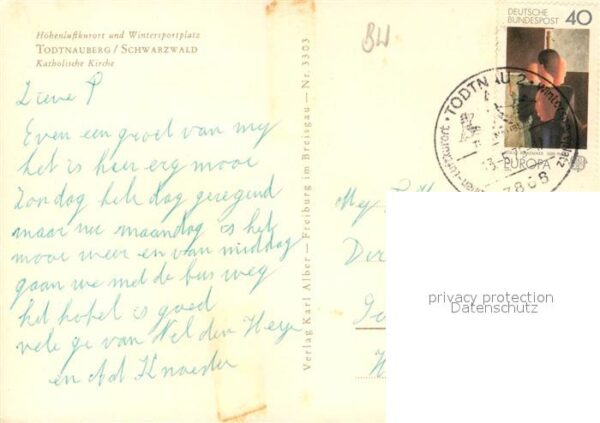 Höhenluftkurort und Wintersportplatz
TODTNAUBERG / SCHWARZWALD
Katholische Kirche
BW
DEUTSCHE
BUNDESPOST 40
EUROPA
TODTNAU 2
7868
Lieve P
Even een groet van mij
het is heer erg mooi
Zondag hele dag geregend
maar nu maandag is het
mooi weer en van middag
gaan we met de bus weg
het hotel is goed
vele gr van Nel den
en Ad
Verlag Karl Alber — Freiburg im Breisgau — Nr. 3303
Mej
privacy protection
Datenschutz